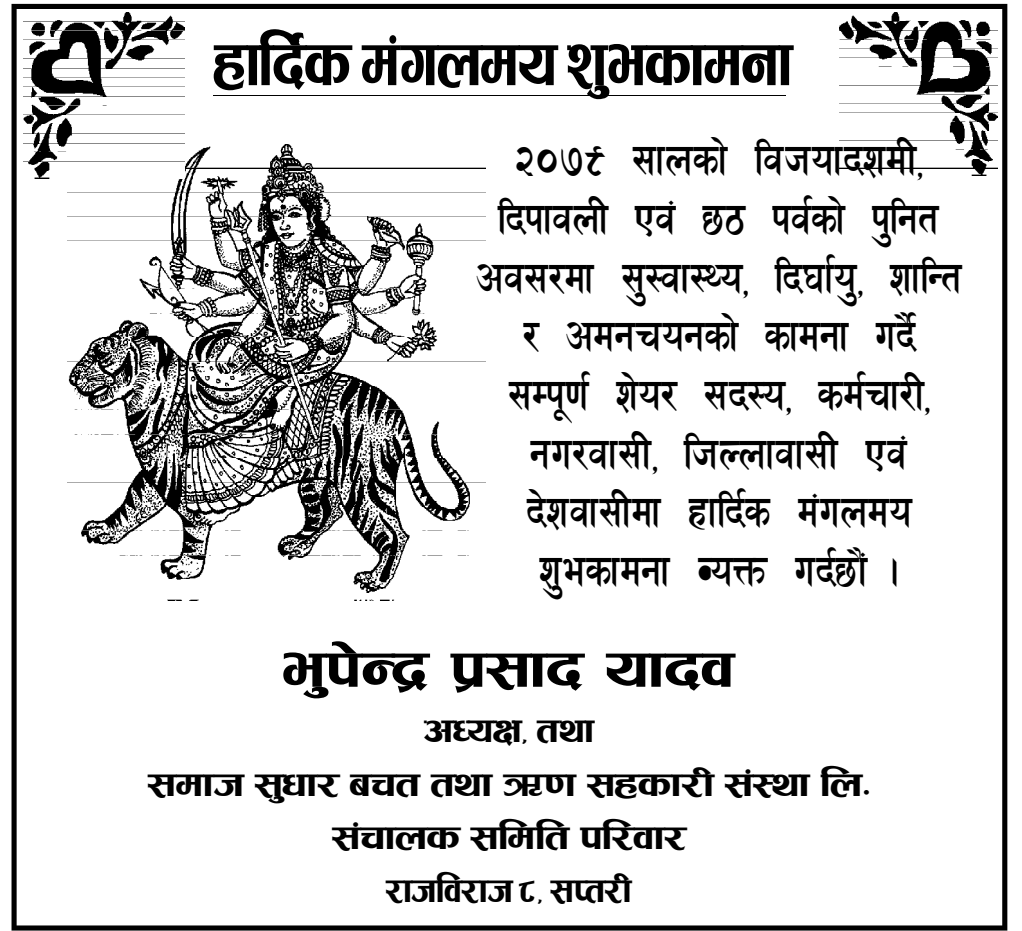 हार्दिक मंगलमय शुभकामना
२०७९ सालको विजयादशमी,
दिपावली एवं छठ पर्वको पुनित
अवसरमा सुस्वास्थ्य, दिर्घायु, शान्ति
र अमनचयनको कामना गर्दै
सम्पूर्ण शेयर सदस्य, कर्मचारी,
नगरवासी, जिल्लावासी एवं
देशवासीमा हार्दिक मंगलमय
शुभकामना व्यक्त गर्दछौं ।
भुपेन्द्र प्रसाद यादव
अध्यक्ष, तथा
समाज सुधार बचत तथा ऋण सहकारी संस्था लि.
संचालक समिति परिवार
राजविराज ८, सप्तरी